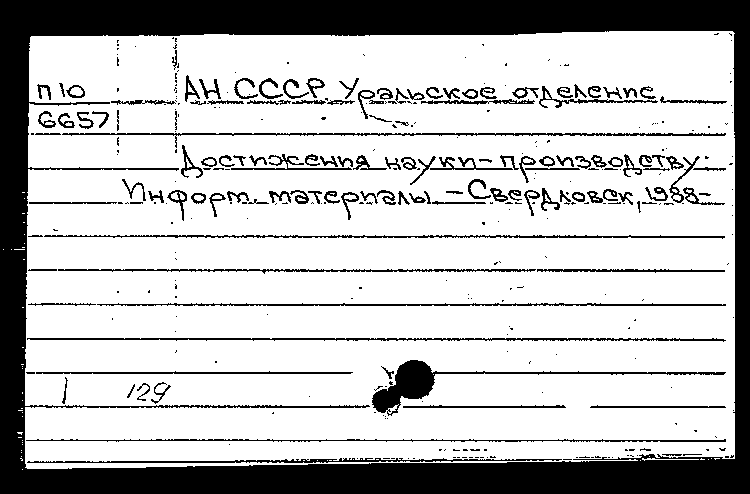 П10 АН СССР Уральское отделение.
6657
Достижения науки - производству:
Информ. материалы. - Свердловск, 1988-
1 129